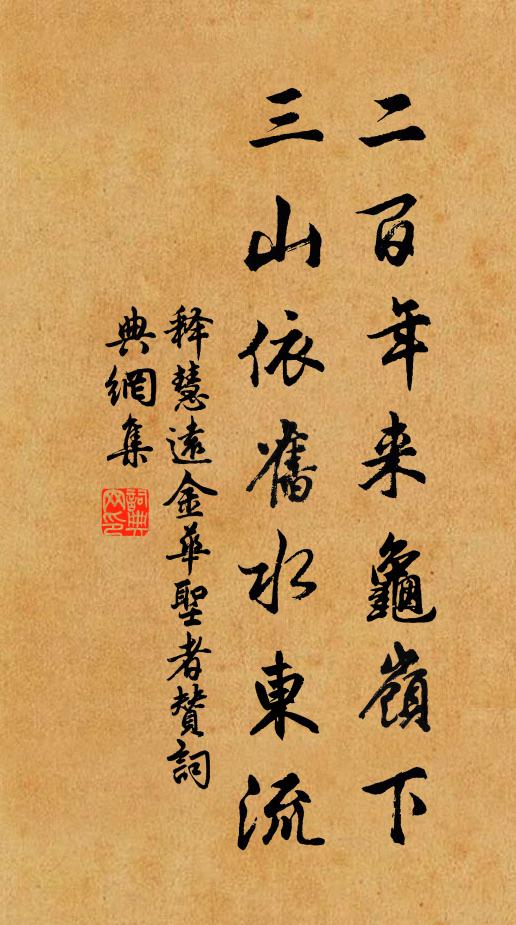 二百年来龜嶺下
三山依舊水東流
释慧遠金華聖者賛詞
典網集
詞典網印